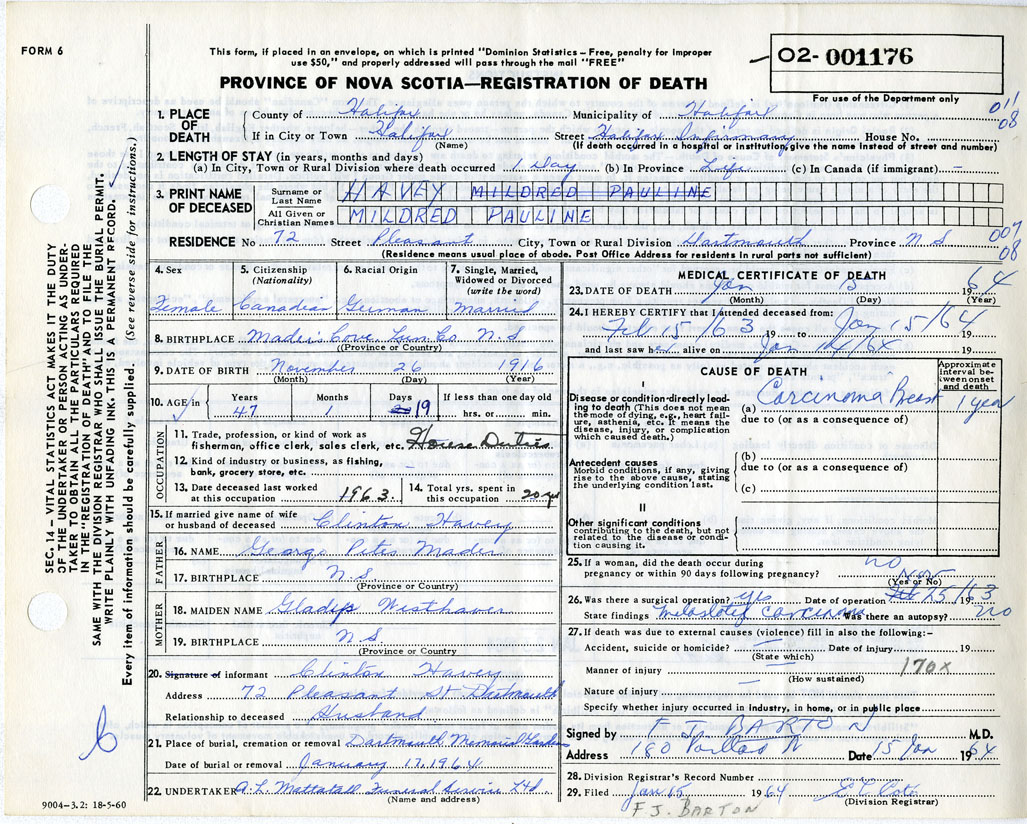 FORM 6
This form, if placed in an envelope, on which is printed "Dominion Statistics – Free, penalty for improper
use $50," and properly addressed will pass through the mail "FREE"
PROVINCE OF NOVA SCOTIA—REGISTRATION OF DEATH
02- 001176
For use of the Department only
011
08
1. PLACE OF DEATH
County of Halifax Municipality of Halifax
If in City or Town Halifax Street Halifax Infirmary House No.
(Name) (If death occurred in a hospital or institution, give the name instead of street and number)
2. LENGTH OF STAY (in years, months and days)
(a) In City, Town or Rural Division where death occurred 1 day (b) In Province Life (c) In Canada (if immigrant) —
3. PRINT NAME OF DECEASED
Surname or Last Name HAVEY MILDRED PAULINE
All Given or Christian Names MILDRED PAULINE
RESIDENCE No 72 Street Pleasant City, Town or Rural Division Dartmouth Province N S
(Residence means usual place of abode. Post Office Address for residents in rural parts not sufficient)
007
08
4. Sex Female
5. Citizenship (Nationality) Canadian
6. Racial Origin German
7. Single, Married, Widowed or Divorced (write the word) Married
8. BIRTHPLACE Mader's Cove Lun Co N.S
(Province or Country)
9. DATE OF BIRTH November 26 1916
(Month) (Day) (Year)
10. AGE in Years 47 Months 1 Days 19 If less than one day old hrs. or min.
OCCUPATION
11. Trade, profession, or kind of work as fisherman, office clerk, sales clerk, etc. House Duties
12. Kind of industry or business, as fishing, bank, grocery store, etc.
13. Date deceased last worked at this occupation 1963
14. Total yrs. spent in this occupation 20 yrs
15. If married give name of wife or husband of deceased Clinton Havey
FATHER
16. NAME Gearge Pites Mader
17. BIRTHPLACE N.S.
(Province or Country)
MOTHER
18. MAIDEN NAME Gladys Westhaver
19. BIRTHPLACE N S.
(Province or Country)
20. Signature of informant Clinton Havey
Address 72 Pleasant St Dartmouth
Relationship to deceased Husband
21. Place of burial, cremation or removal Dartmouth Memorial Gardens
Date of burial or removal January 17, 1964
22. UNDERTAKER A.L. Mattatall Funeral Service Ltd
(Name and address)
9004–3.2: 18-5-60
SEC. 14 – VITAL STATISTICS ACT MAKES IT THE DUTY
OF THE UNDERTAKER OR PERSON ACTING AS UNDER-
TAKER TO OBTAIN ALL THE PARTICULARS REQUIRED
IN THE "REGISTRATION OF DEATH" AND TO FILE THE
SAME WITH THE DIVISION REGISTRAR WHO SHALL ISSUE THE BURIAL PERMIT.
WRITE PLAINLY WITH UNFADING INK. THIS IS A PERMANENT RECORD.
Every item of information should be carefully supplied. (See reverse side for instructions.)
MEDICAL CERTIFICATE OF DEATH
23. DATE OF DEATH Jan 15 19 64
(Month) (Day) (Year)
24. I HEREBY CERTIFY that I attended deceased from:
Feb 15/63 19 to Jan 15/64 19
and last saw her alive on Jan 14/64 19
CAUSE OF DEATH
Approximate interval between onset and death
I
Disease or condition directly leading to death (This does not mean the mode of dying, e.g., heart failure, asthenia, etc. It means the disease, injury, or complication which caused death.)
(a) Carcinoma Breast 1 year
due to (or as a consequence of)
Antecedent causes
Morbid conditions, if any, giving rise to the above cause, stating the underlying condition last.
(b)
due to (or as a consequence of)
(c)
II
Other significant conditions contributing to the death, but not related to the disease or condition causing it.
25. If a woman, did the death occur during pregnancy or within 90 days following pregnancy? no
(Yes or No)
26. Was there a surgical operation? yes Date of operation 25 1963
State findings Metastatic carcinoma Was there an autopsy? no
27. If death was due to external causes (violence) fill in also the following:–
Accident, suicide or homicide? — Date of injury 19
(State which)
Manner of injury — 170x
(How sustained)
Nature of injury —
Specify whether injury occurred in industry, in home, or in public place
Signed by F J. BARTON M.D.
Address 180 Date 15 Jan 1964
28. Division Registrar's Record Number
29. Filed Jan 15 1964
(Division Registrar)
F.J. BARTON